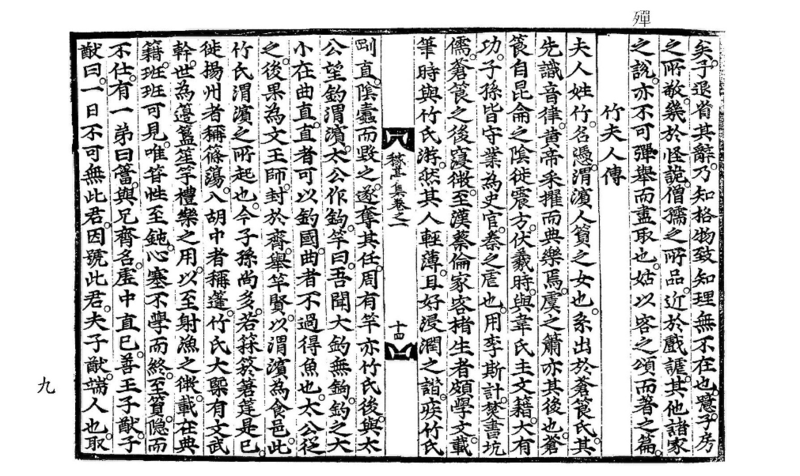 殫
矣予退省其辭乃知格物致知理無不在也噫子房
之所敬幾於怪說僧孺之所品近於戲謔其他諸家
之說亦不可彈舉而盡取也姑以容之頌而著之篇
竹夫人傳
夫人姓竹名憑渭濱人篔之女也系出於蒼筤氏其
先識音律黃帝采擢而典樂焉虞之簫亦其後也蒼
筤自昆侖之陰徙震方伏羲時與韋氏主文籍大有
功子孫皆守業為史官秦之虐也用李斯計焚書坑
儒蒼筤之後寖微至漢蔡倫家客楮生者頗學文載
筆時與竹氏游然其人輕薄且好浸潤之譖疾竹氏
稼亭集卷之一
十四
剛直陰蠹而毀之遂奪其任周有竿亦竹氏後與太
公望釣渭濱太公作鉤竿曰吾聞大釣無鉤釣之大
小在曲直直者可以釣國曲者不過得魚也太公從
之後果為文王師封於齊舉竿賢以渭濱為食邑此
竹氏渭濱之所起也今子孫尚多若箖箊筳是已
徙揚州者稱篠簜入胡中者稱篷竹氏大槩有文武
幹世為籩簋笙竽禮樂之用以至射漁之微載在典
籍班班可見唯䇞性至鈍心塞不學而終至篔隱而
不仕有一弟曰簹與兄齊名虛中直已善王子猷子
猷曰一日不可無此君因號此君夫子猷端人也取
九